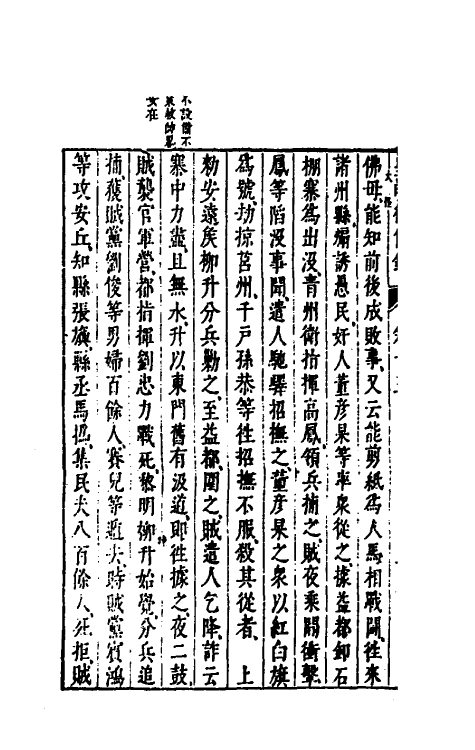 佛母能知前後成敗事又云能剪紙爲人馬相戰鬪徃來
諸州縣煽誘愚民奸人董彥杲等率衆從之據益都卸石
棚寨爲出没青州衛指揮高鳳領兵捕之賊夜乘間衝擊
鳳等陷没事聞遣人馳驛招撫之董彥杲之衆以紅白旗
爲號劫掠莒州千戶孫恭等徃招撫不服殺其從者上
勑安遠侯柳升分兵勦之至益都圍之賊遣人乞降詐云
寨中力盡且無水升以東門舊有汲道即徃據之夜二鼓
賊襲官軍營都指揮劉忠力戰死黎明柳升始覺分兵追
捕獲賊黨劉俊等男婦百餘人賽兒等遁去時賊黨賓鴻
等攻安丘知縣張旟縣丞馬撝集民夫八百餘人死拒賊
不設備不
女在